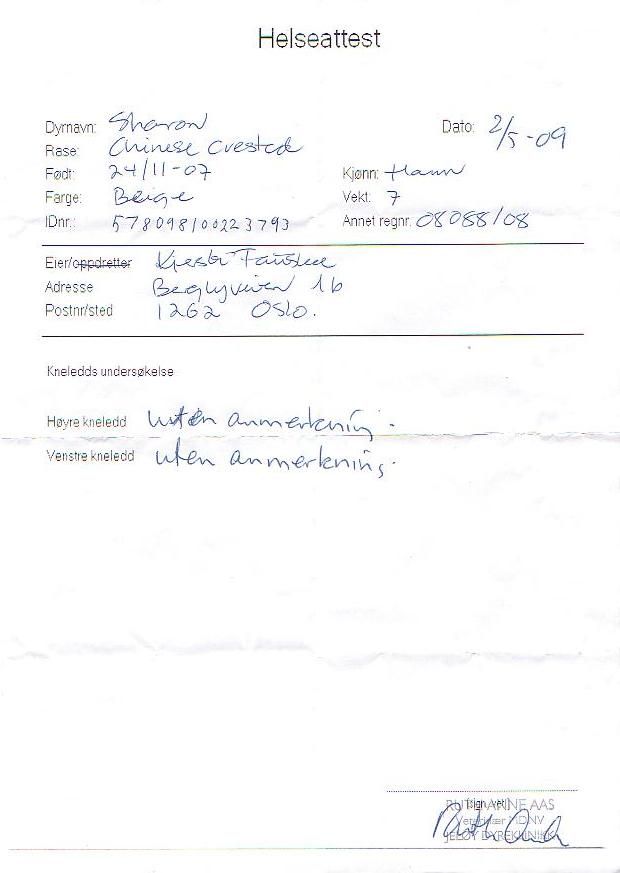 Helseattest
Dyrnavn: Sharon
Dato: 2/5-09
Rase: Chinese crested
Født: 24/11-07
Kjønn: Hann
Farge: Beige
Vekt: 7
IDnr.: 578098100223793
Annet regnr. 08088/08
Eier/oppdretter Kjersti Fauskee
Adresse 1b
Postnr/sted 1262 Oslo.
Kneledds undersøkelse
Høyre kneledd uten anmerkning.
Venstre kneledd uten anmerkning.
RUTH ANNE AAS
Veterinær MDNV
JELØY DYREKLINIKK